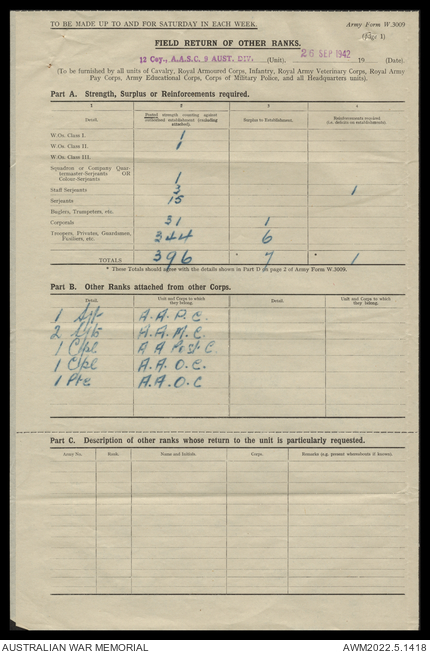 TO BE MADE UP TO AND FOR SATURDAY IN EACH WEEK.
Army Form W.3009
(Page 1)
FIELD RETURN OF OTHER RANKS.
12 Coy., A.A.S.C. 9 AUST. DIV. (Unit). 26 SEP 1942 19 (Date).
(To be furnished by all units of Cavalry, Royal Armoured Corps, Infantry, Royal Army Veterinary Corps, Royal Army
Pay Corps, Army Educational Corps, Corps of Military Police, and all Headquarters units).
Part A. Strength, Surplus or Reinforcements required.
1 2 3 4
Detail. Posted strength counting against authorised establishment (excluding attached). Surplus to Establishment. Reinforcements required (for deficits on establishment).
W.Os. Class I. 1
W.Os. Class II. 1
W.Os. Class III.
Squadron or Company Quar-
termaster-Serjeants OR
Colour-Serjeants 1
Staff Serjeants 3 1
Serjeants 15
Buglers, Trumpeters, etc.
Corporals 31 1
Troopers, Privates, Guardsmen,
Fusiliers, etc. 344 6
TOTALS 396 * 7 * 1
* These Totals should agree with the details shown in Part D on page 2 of Army Form W.3009.
Part B. Other Ranks attached from other Corps.
Detail. Unit and Corps to which they belong. Detail. Unit and Corps to which they belong.
1 Sgt A.A.P.C.
2 Sgts A.A.M.C.
1 Cpl A A Post C.
1 Cpl A.A.O.C.
1 Pte A.A.O.C
Part C. Description of other ranks whose return to the unit is particularly requested.
Army No. Rank. Name and Initials. Corps. Remarks (e.g. present whereabouts if known).
AUSTRALIAN WAR MEMORIAL
AWM2022.5.1418